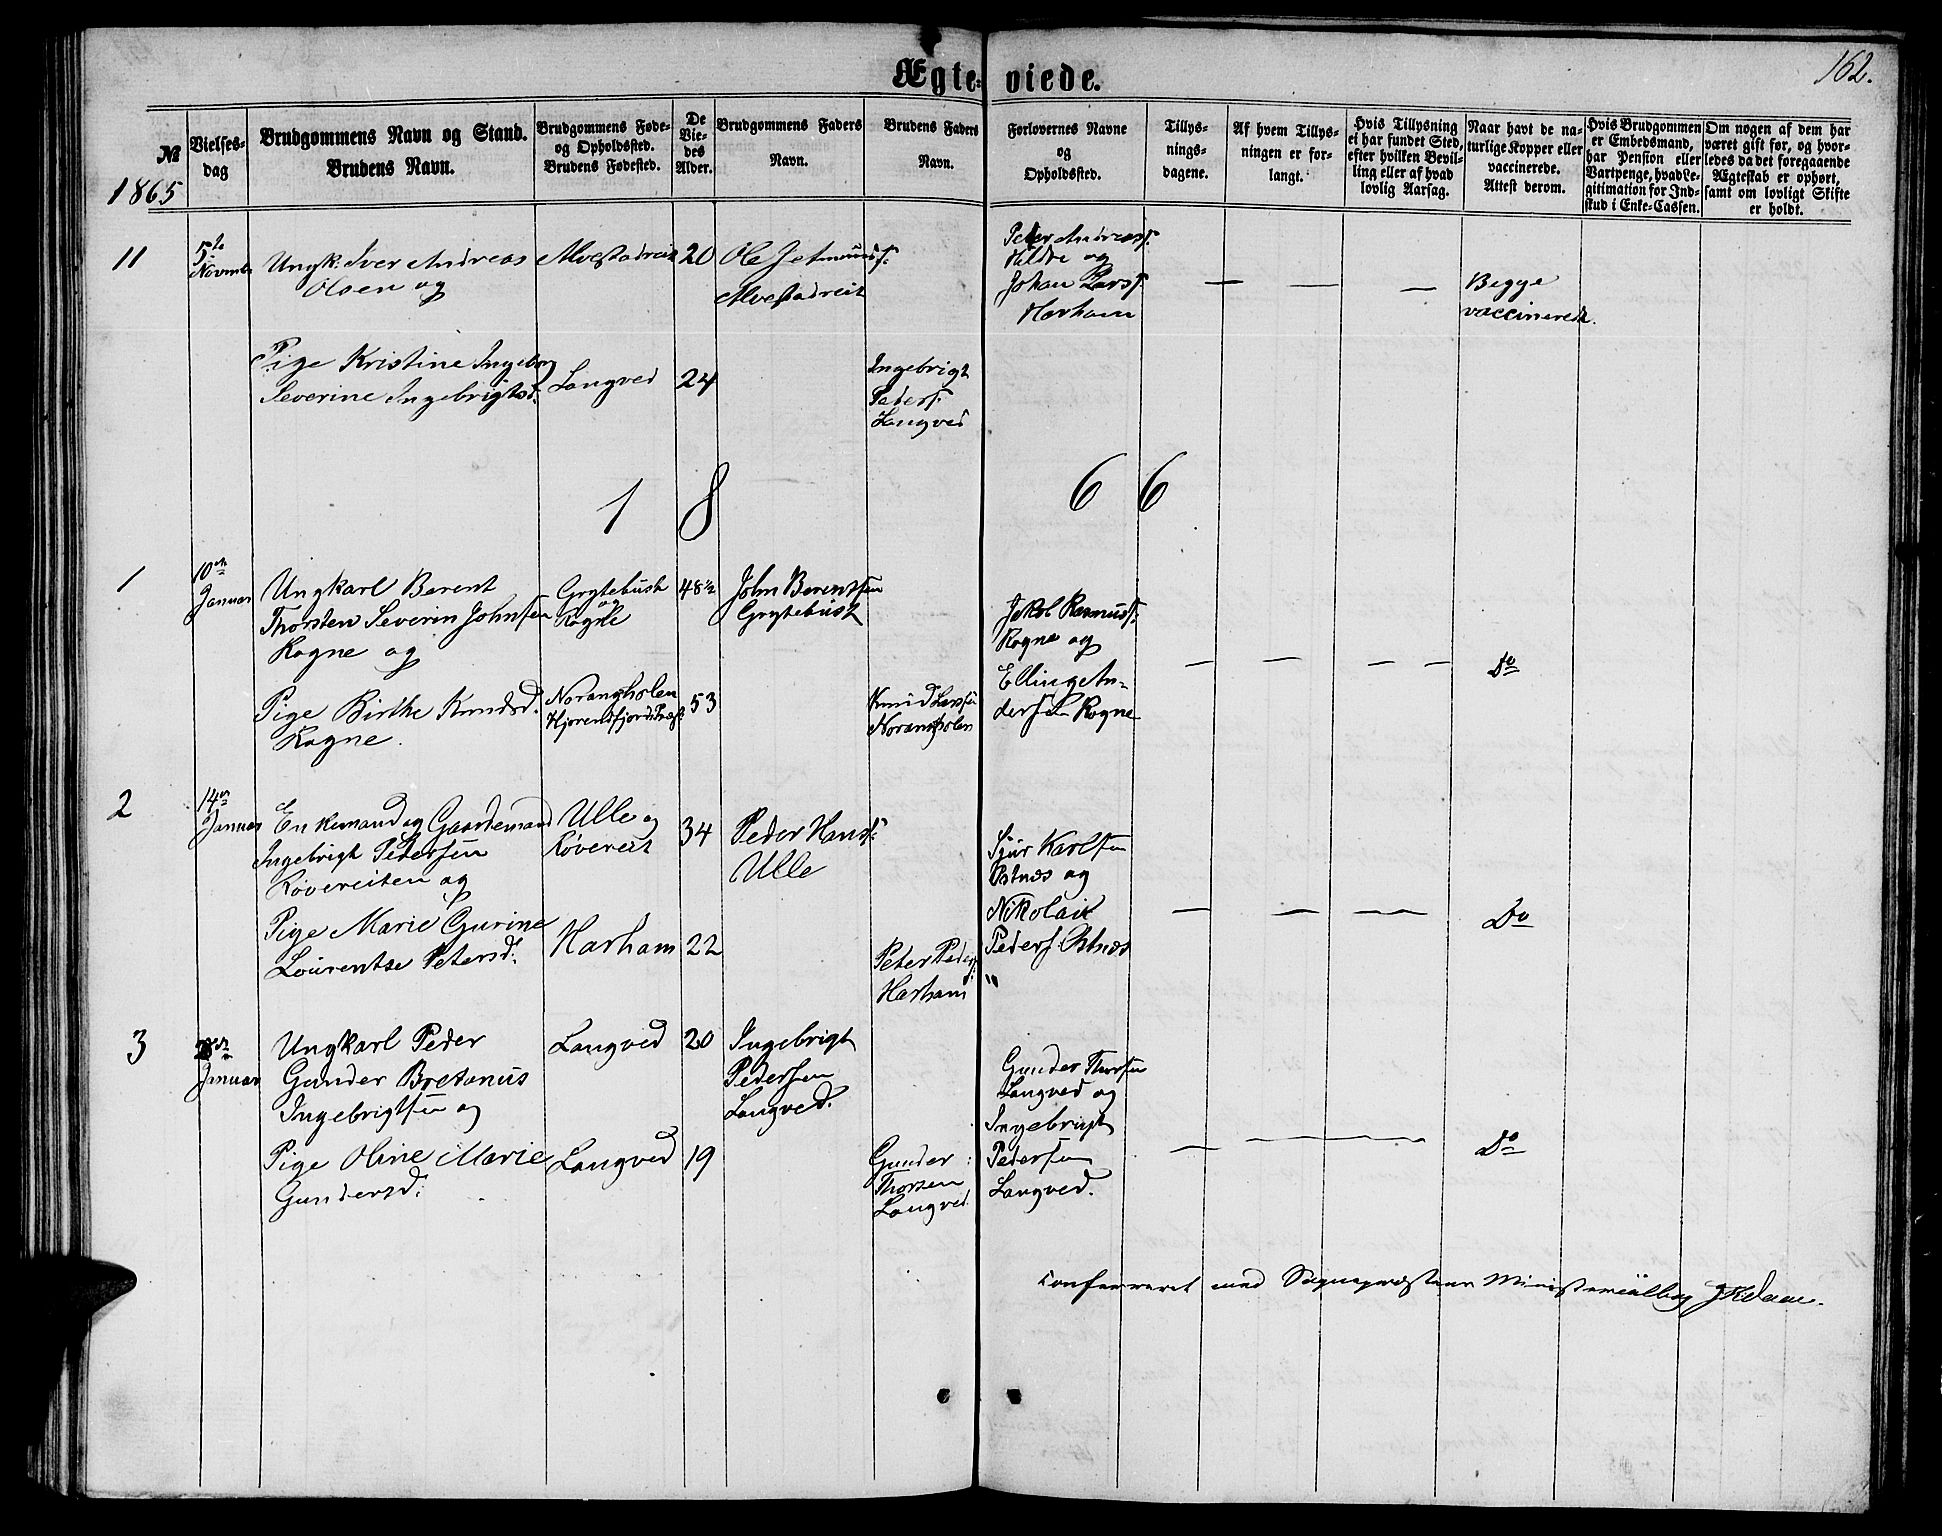 162.
Ægteviede.
№
Vielses-
dag
Brudgommens Navn og Stand.
Brudens Navn.
Brudgommens Føde-
og Opholdsted.
Brudens Fødested.
De
Vie-
des
Alder.
Brudgommens Faders
Navn.
Brudens Faders
Navn.
Forlovernes Navne
og
Opholdsted.
Tillys-
nings-
dagene.
Af hvem Tillys-
ningen er for-
langt.
Hvis Tillysning
ei har fundet Sted,
efter hvilken Bevil-
ling eller af hvad
lovlig Aarsag.
Naar havt de na-
turlige Kopper eller
vaccinerede.
Attest derom.
Hvis Brudgommen
er Embedsmand,
har Pension eller
Vartpenge, hvad Le-
gitimation for Ind-
skud i Enke-Cassen.
Om nogen af dem har
været gift før, og hvor-
ledes da det foregaaende
Ægteskab er ophørt,
samt om lovligt Skifte
er holdt.
1865
11
5te
Novmbr
Ungk: Iver Andreas
Olsen og
Alvestadreit
20
Ole Jetmunds.
Alvestadreit
Peter Andreass.
Hildre og
Johan Larss.
Harham
— — —
Begge
vaccinerede.
Pige Kristine Ingeborg
Severine Ingebrigtsd.
Langved
24
Ingebrigt
Peders.
Langved
1 8 6 6
1
10de
Januar
Ungkarl Berent
Thorsten Severin Johnsen
Rogne og
Grytebust
og
Rogne
48½
John Berentsen
Grytebust
Jakob Rasmuss.
Rogne og
Elling An-
dersen Rogne
— — — —
Do
Pige Birthe Knudsd.
Rogne.
Norangholen
Hjorendfjords Præst:
53
Knud Larsen
Norangholen
2
14de
Januar
Enkemand og Gaardemand
Ingebrigt Pedersen
Røvereiten og
Ulle og
Røvereit
34
Peder Hans.
Ulle
Sjur Karlsen
Østnæs og
Nikolai
Peders. Østnæs
"
— — — —
Do
Pige Marie Gurine
Lourentse Petersd:
Harham
22
Peter Peders.
Harham
3
Januar
Ungkarl Peder
Gunder Bretanus
Ingebrigtsen og
Langved
20
Ingebrigt
Pedersen
Langved.
Gunder Thorsen
Langved og
Ingebrigt
Pedersen
Langved.
— — — —
Do
Pige Oline Marie
Gundersd:
Langved
19
Gunder
Thorsen
Langved.
Confereret med Sognepræstens Ministerialbog JKDaae.